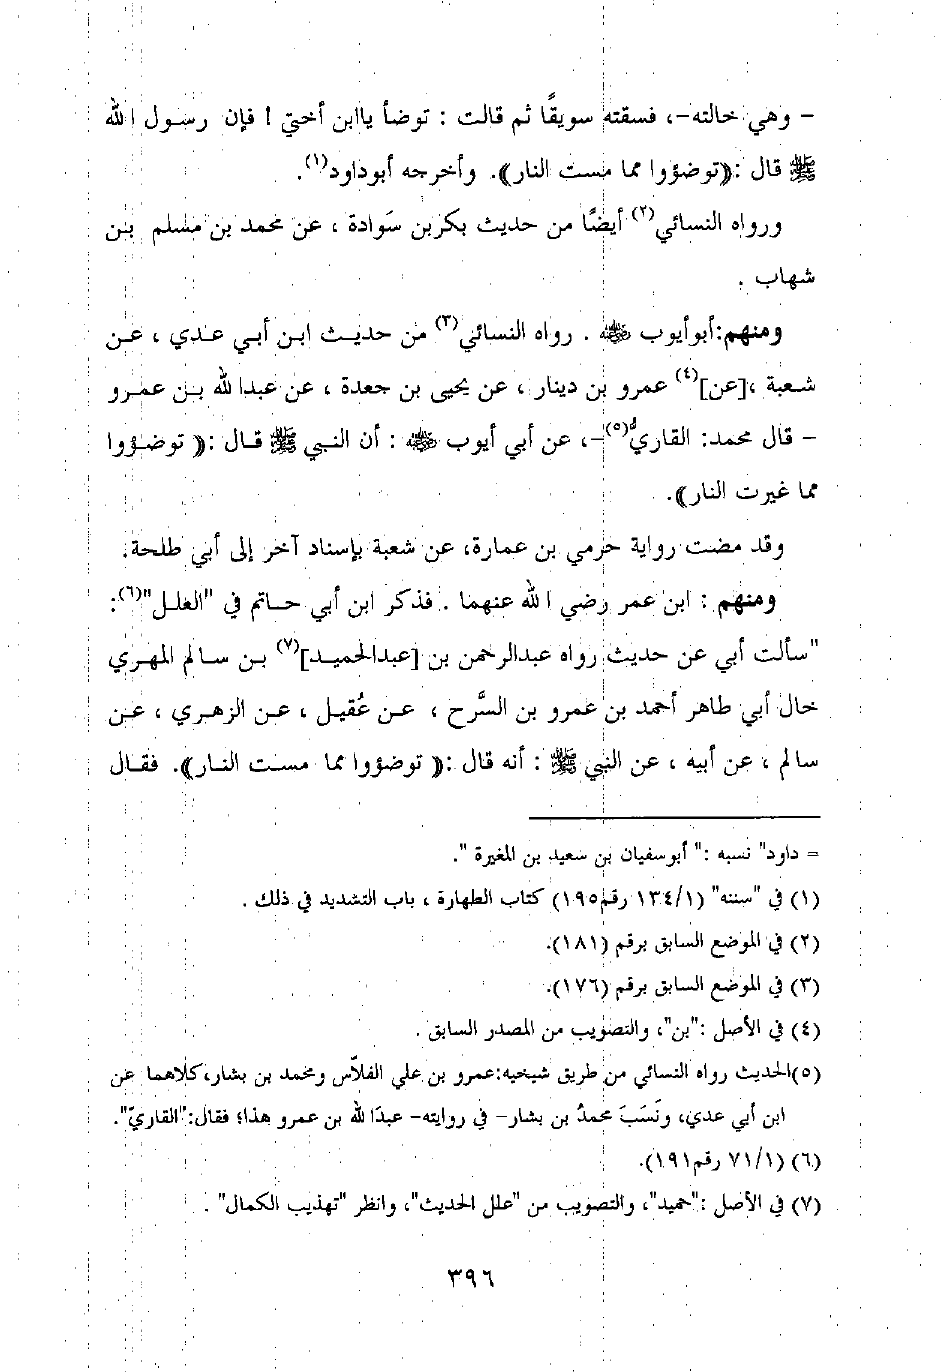 - وهي خالته-، فسقته سويقًا ثم قالت : توضأ ياابن أختي ! فإن رسول الله
ﷺ قال :((توضؤوا مما مست النار)). وأخرجه أبوداود(١).
ورواه النسائي(٢) أيضًا من حديث بكربن سَوادة ، عن محمد بن مسلم بن
شهاب .
ومنهم:أبوأيوب رضي الله عنه . رواه النسائي(٣) من حديث ابن أبي عدي ، عن
شعبة ،[عن](٤) عمرو بن دينار ، عن يحيى بن جعدة ، عن عبدالله بن عمرو
- قال محمد: القاريُّ(٥)-، عن أبي أيوب رضي الله عنه : أن النبي ﷺ قال :(( توضؤوا
مما غيرت النار)).
وقد مضت رواية حرمي بن عمارة، عن شعبة بإسناد آخر إلى أبي طلحة.
ومنهم : ابن عمر رضي الله عنهما . فذكر ابن أبي حاتم في "العلل"(٦):
"سألت أبي عن حديث رواه عبدالرحمن بن [عبدالحميد](٧) بن سالم المهري
خال أبي طاهر أحمد بن عمرو بن السَّرح ، عن عُقيل ، عن الزهري ، عن
سالم ، عن أبيه ، عن النبي ﷺ : أنه قال :(( توضؤوا مما مست النار)). فقال
= داود" نسبه :" أبوسفيان بن سعيد بن المغيرة ".
(١) في "سننه" (١/١٣٤ رقم١٩٥) كتاب الطهارة ، باب التشديد في ذلك .
(٢) في الموضع السابق برقم (١٨١).
(٣) في الموضع السابق برقم (١٧٦).
(٤) في الأصل :"بن"، والتصويب من المصدر السابق .
(٥)الحديث رواه النسائي من طريق شيخيه:عمرو بن علي الفلاّس ومحمد بن بشار،كلاهما عن
ابن أبي عدي، ونَسَبَ محمدُ بن بشار- في روايته- عبدَالله بن عمرو هذا؛ فقال:"القاريّ".
(٦) (١/٧١ رقم١٩١).
(٧) في الأصل :"حميد"، والتصويب من "علل الحديث"، وانظر "تهذيب الكمال" .
٣٩٦